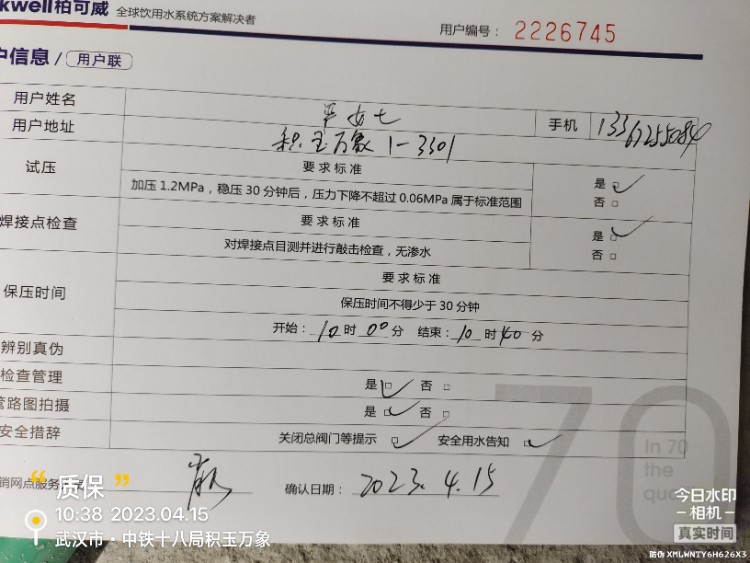 kwell柏可威 全球饮用水系统方案解决者
用户编号： 2226745
户信息 / 用户联
用户姓名
用户地址 积玉万象 1-3301 手机
试压 要求标准
加压1.2MPa，稳压30分钟后，压力下降不超过0.06MPa属于标准范围 是 否
焊接点检查 要求标准
对焊接点目测并进行敲击检查，无渗水 是 否
保压时间 要求标准
保压时间不得少于30分钟
开始：10时00分 结束：10时40分
辨别真伪
检查管理 是 否
管路图拍摄 是 否
安全措辞 关闭总阀门等提示 安全用水告知
销网点服务 确认日期：2023.4.15
70
In 70
the
“质保”
10:38 2023.04.15
武汉市·中铁十八局积玉万象
今日水印
相机
真实时间
防伪 XMLWNTY6H626X3